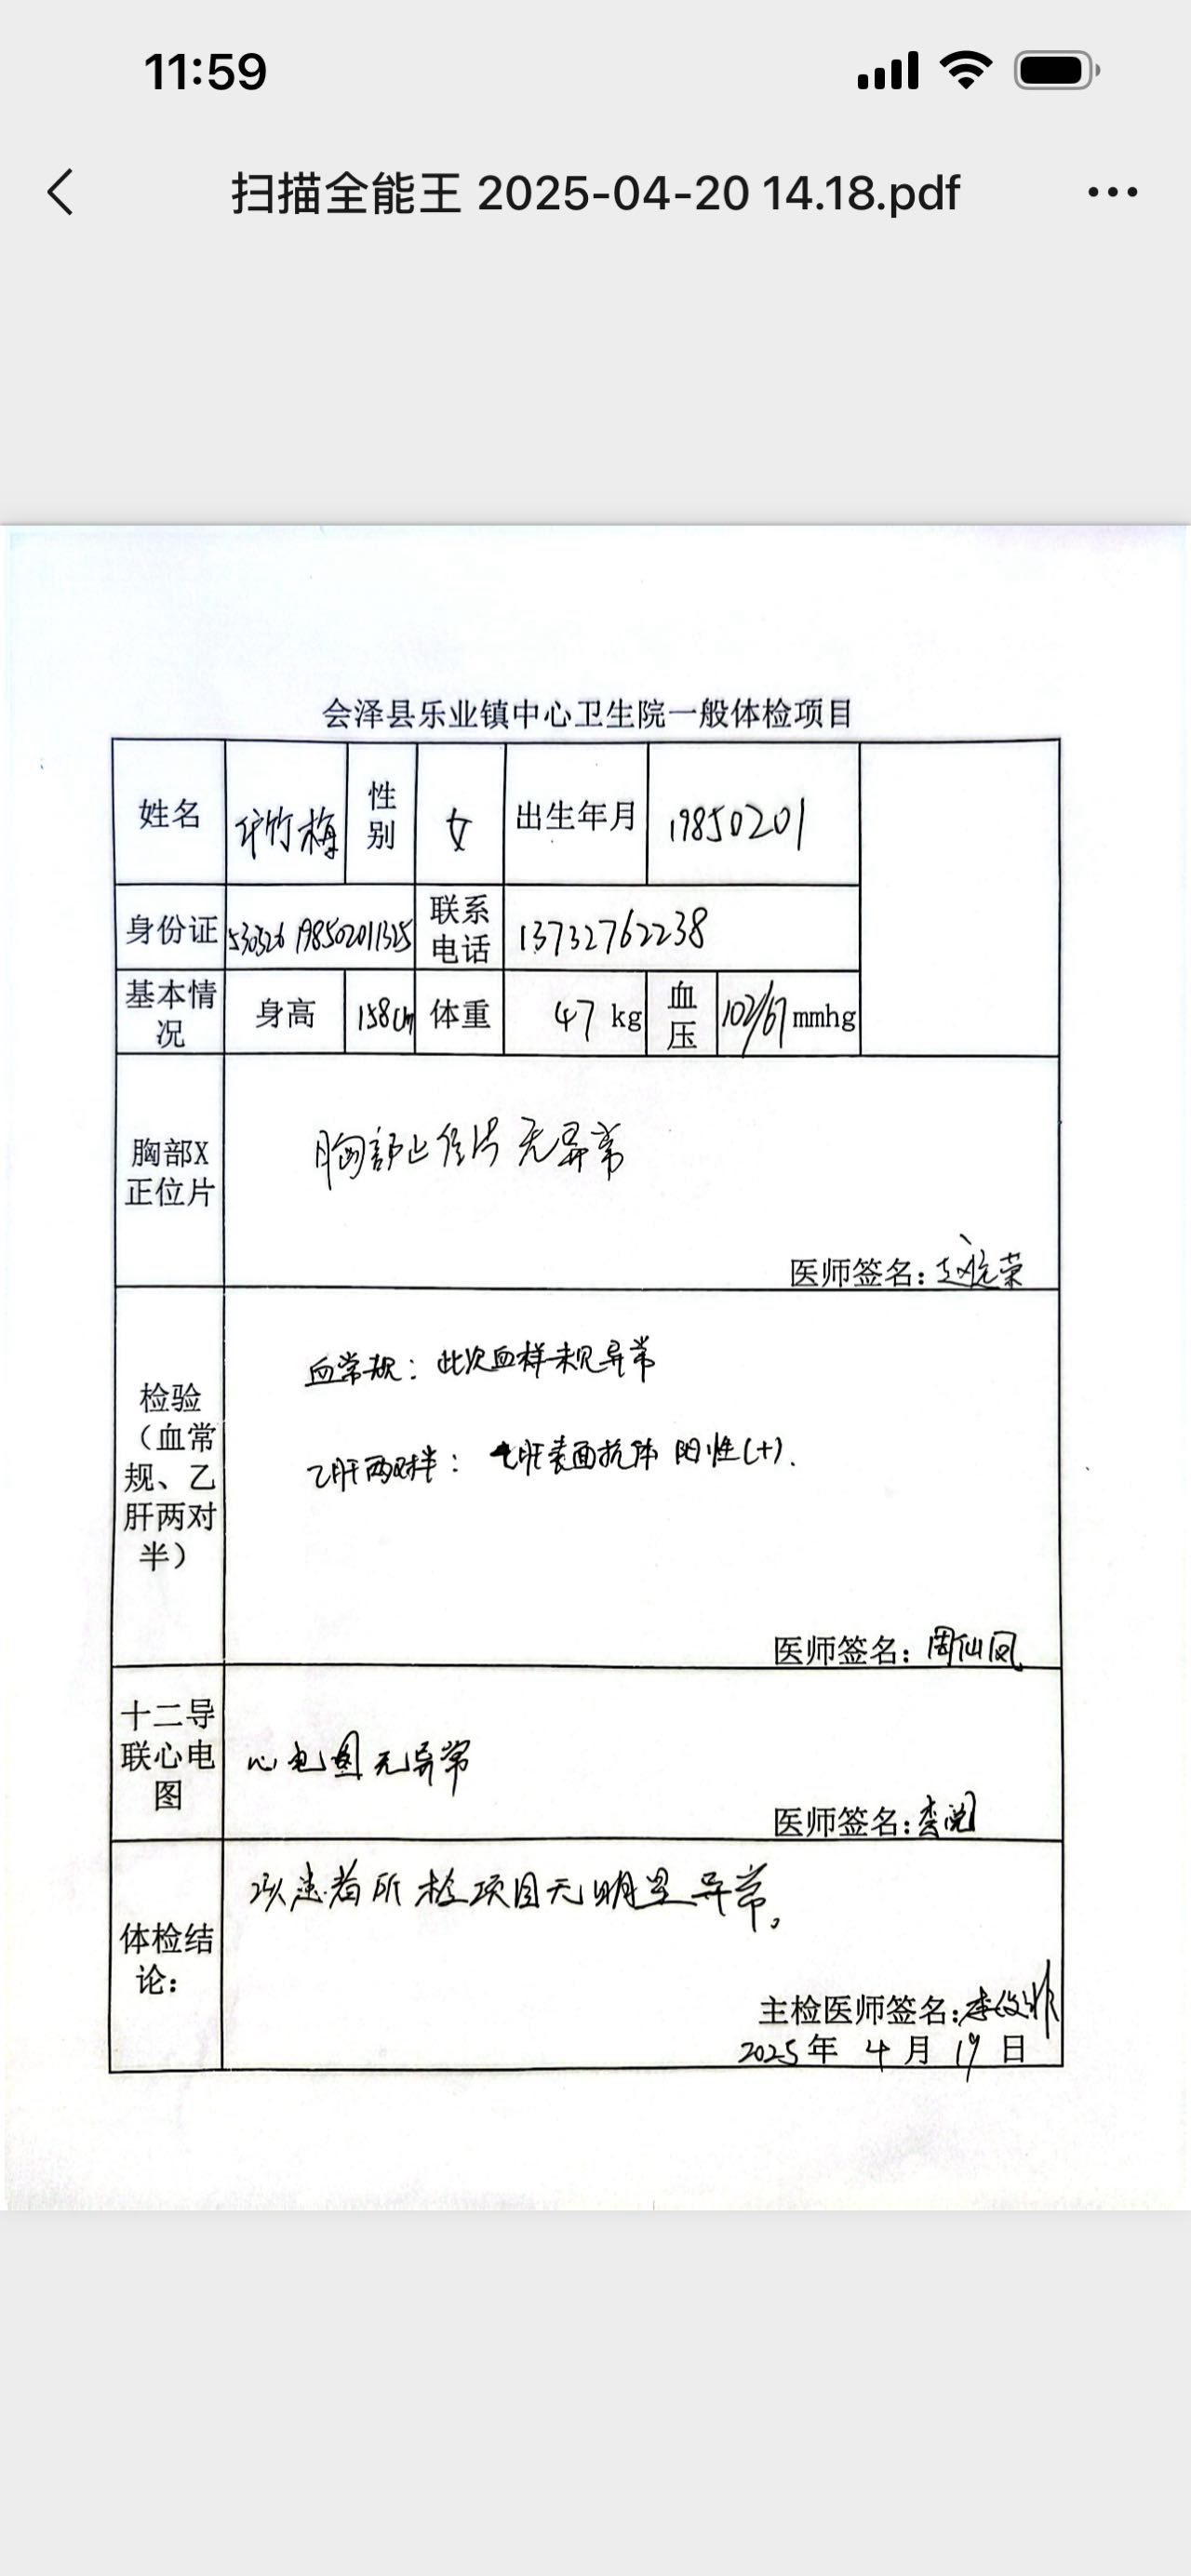 11:59
扫描全能王 2025-04-20 14.18.pdf
会泽县乐业镇中心卫生院一般体检项目
姓名 竹梅 性别 女 出生年月 19850201
身份证 530326198502011325 联系电话 13732762238
基本情况 身高 158cm 体重 47 kg 血压 102/67 mmhg
胸部X正位片
胸部正位片无异常
医师签名:
检验
（血常规、乙肝两对半）
血常规：此次血样未见异常
乙肝两对半：乙肝表面抗体 阳性(+).
医师签名：周仙凤
十二导联心电图
心电图无异常
医师签名:李闵
体检结论：
该患者所检项目无明显异常。
主检医师签名:李俊
2025年 4月 19日